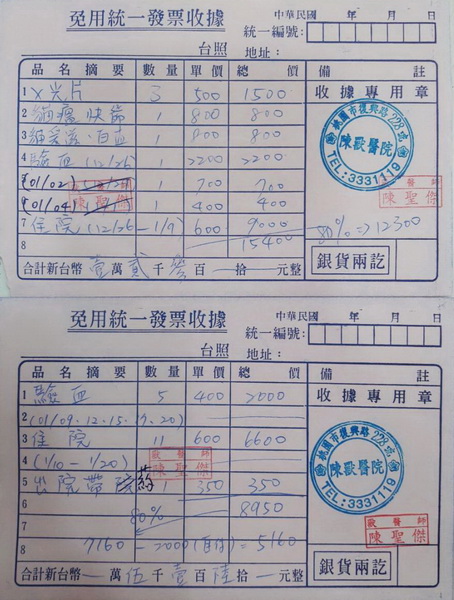 免用統一發票收據
中華民國 年 月 日
統一編號:
台照 地址:
品名摘要 數量 單價 總價 備註
1 X光片 3 500 1500 收據專用章
2 貓瘟快篩 1 800 800
3 貓愛滋、白血 1 800 800
4 驗血(12/26) 1 2200 2200
5 (01/02) 1 700 700
6 (01/04) 1 400 400
7 住院(12/26-1/9) 600 9000
8 15400
80%=>12300
桃園市復興路228號
陳獸醫院
TEL:3331119
獸醫師
陳聖傑
合計新台幣壹萬貳千參百 拾 元整
銀貨兩訖
免用統一發票收據
中華民國 年 月 日
統一編號:
台照 地址:
品名摘要 數量 單價 總價 備註
1 驗血 5 400 2000 收據專用章
2 (01/09.12.15.17.20)
3 住院 11 600 6600
4 (1/10-1/20)
5 出院帶藥 1 350 350
6 8950
7 80%
8 7160-2000(自付)=5160
桃園市復興路228號
陳獸醫院
TEL:3331119
獸醫師
陳聖傑
獸醫師
陳聖傑
合計新台幣 萬伍千壹百陸拾 元整
銀貨兩訖